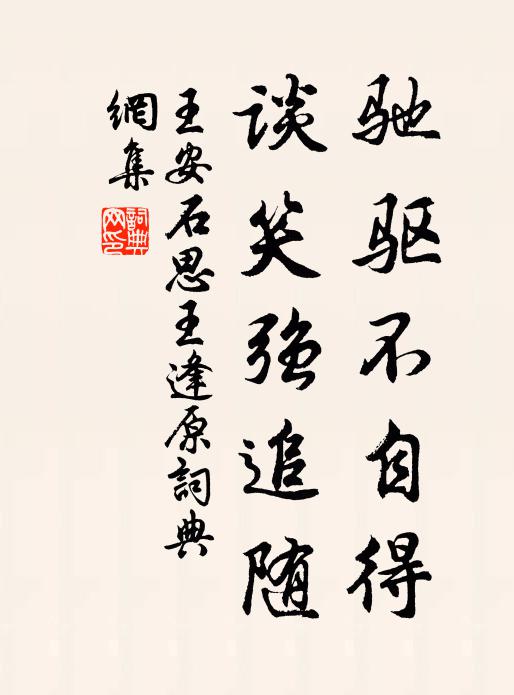 驰驱不自得
谈笑强追随
王安石思王逢原詞典
網集
詞典
网印